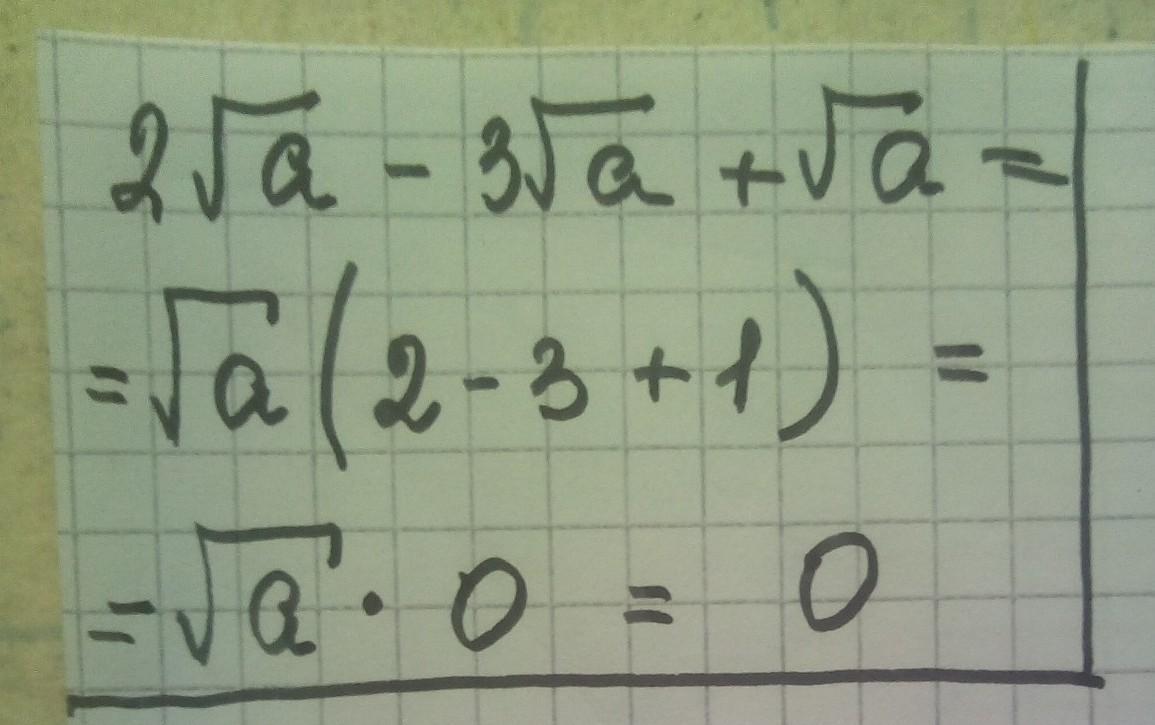 2√a - 3√a + √a =
= √a (2 - 3 + 1) =
= √a · 0 = 0